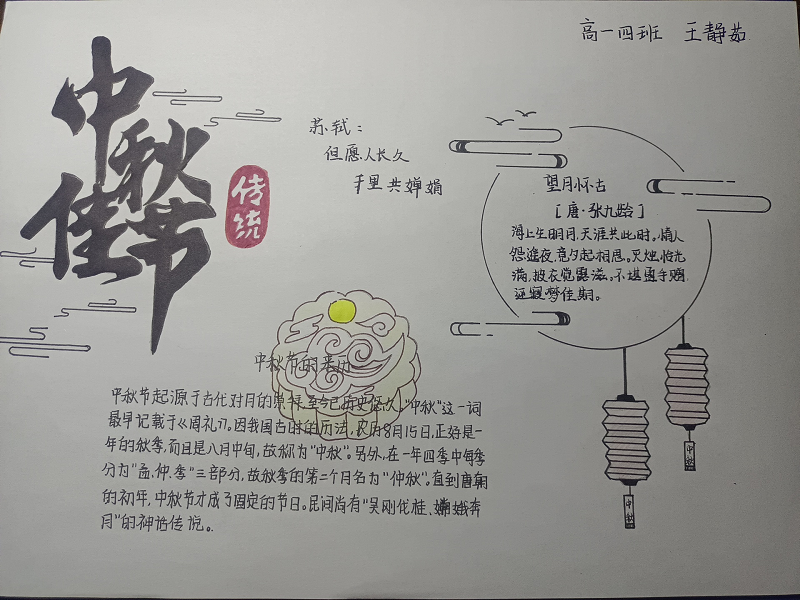 高一四班 王静茹
中秋
佳节
传统
苏轼：
但愿人长久
千里共婵娟
望月怀古
[唐·张九龄]
海上生明月，天涯共此时。情人
怨遥夜，竟夕起相思。灭烛怜光
满，披衣觉露滋。不堪盈手赠，
还寝梦佳期。
中秋节的来历
中秋节起源于古代对月的崇拜，至今已历史悠久。“中秋”这一词
最早记载于《周礼》。因我国古时的历法，农历8月15日，正好是一
年的秋季，而且是八月中旬，故称为“中秋”。另外，在一年四季中每季
分为“孟、仲、季”三部分，故秋季的第二个月名为“仲秋”。直到唐朝
的初年，中秋节才成了固定的节日。民间尚有“吴刚伐桂、嫦娥奔
月”的神话传说。
中秋
中秋